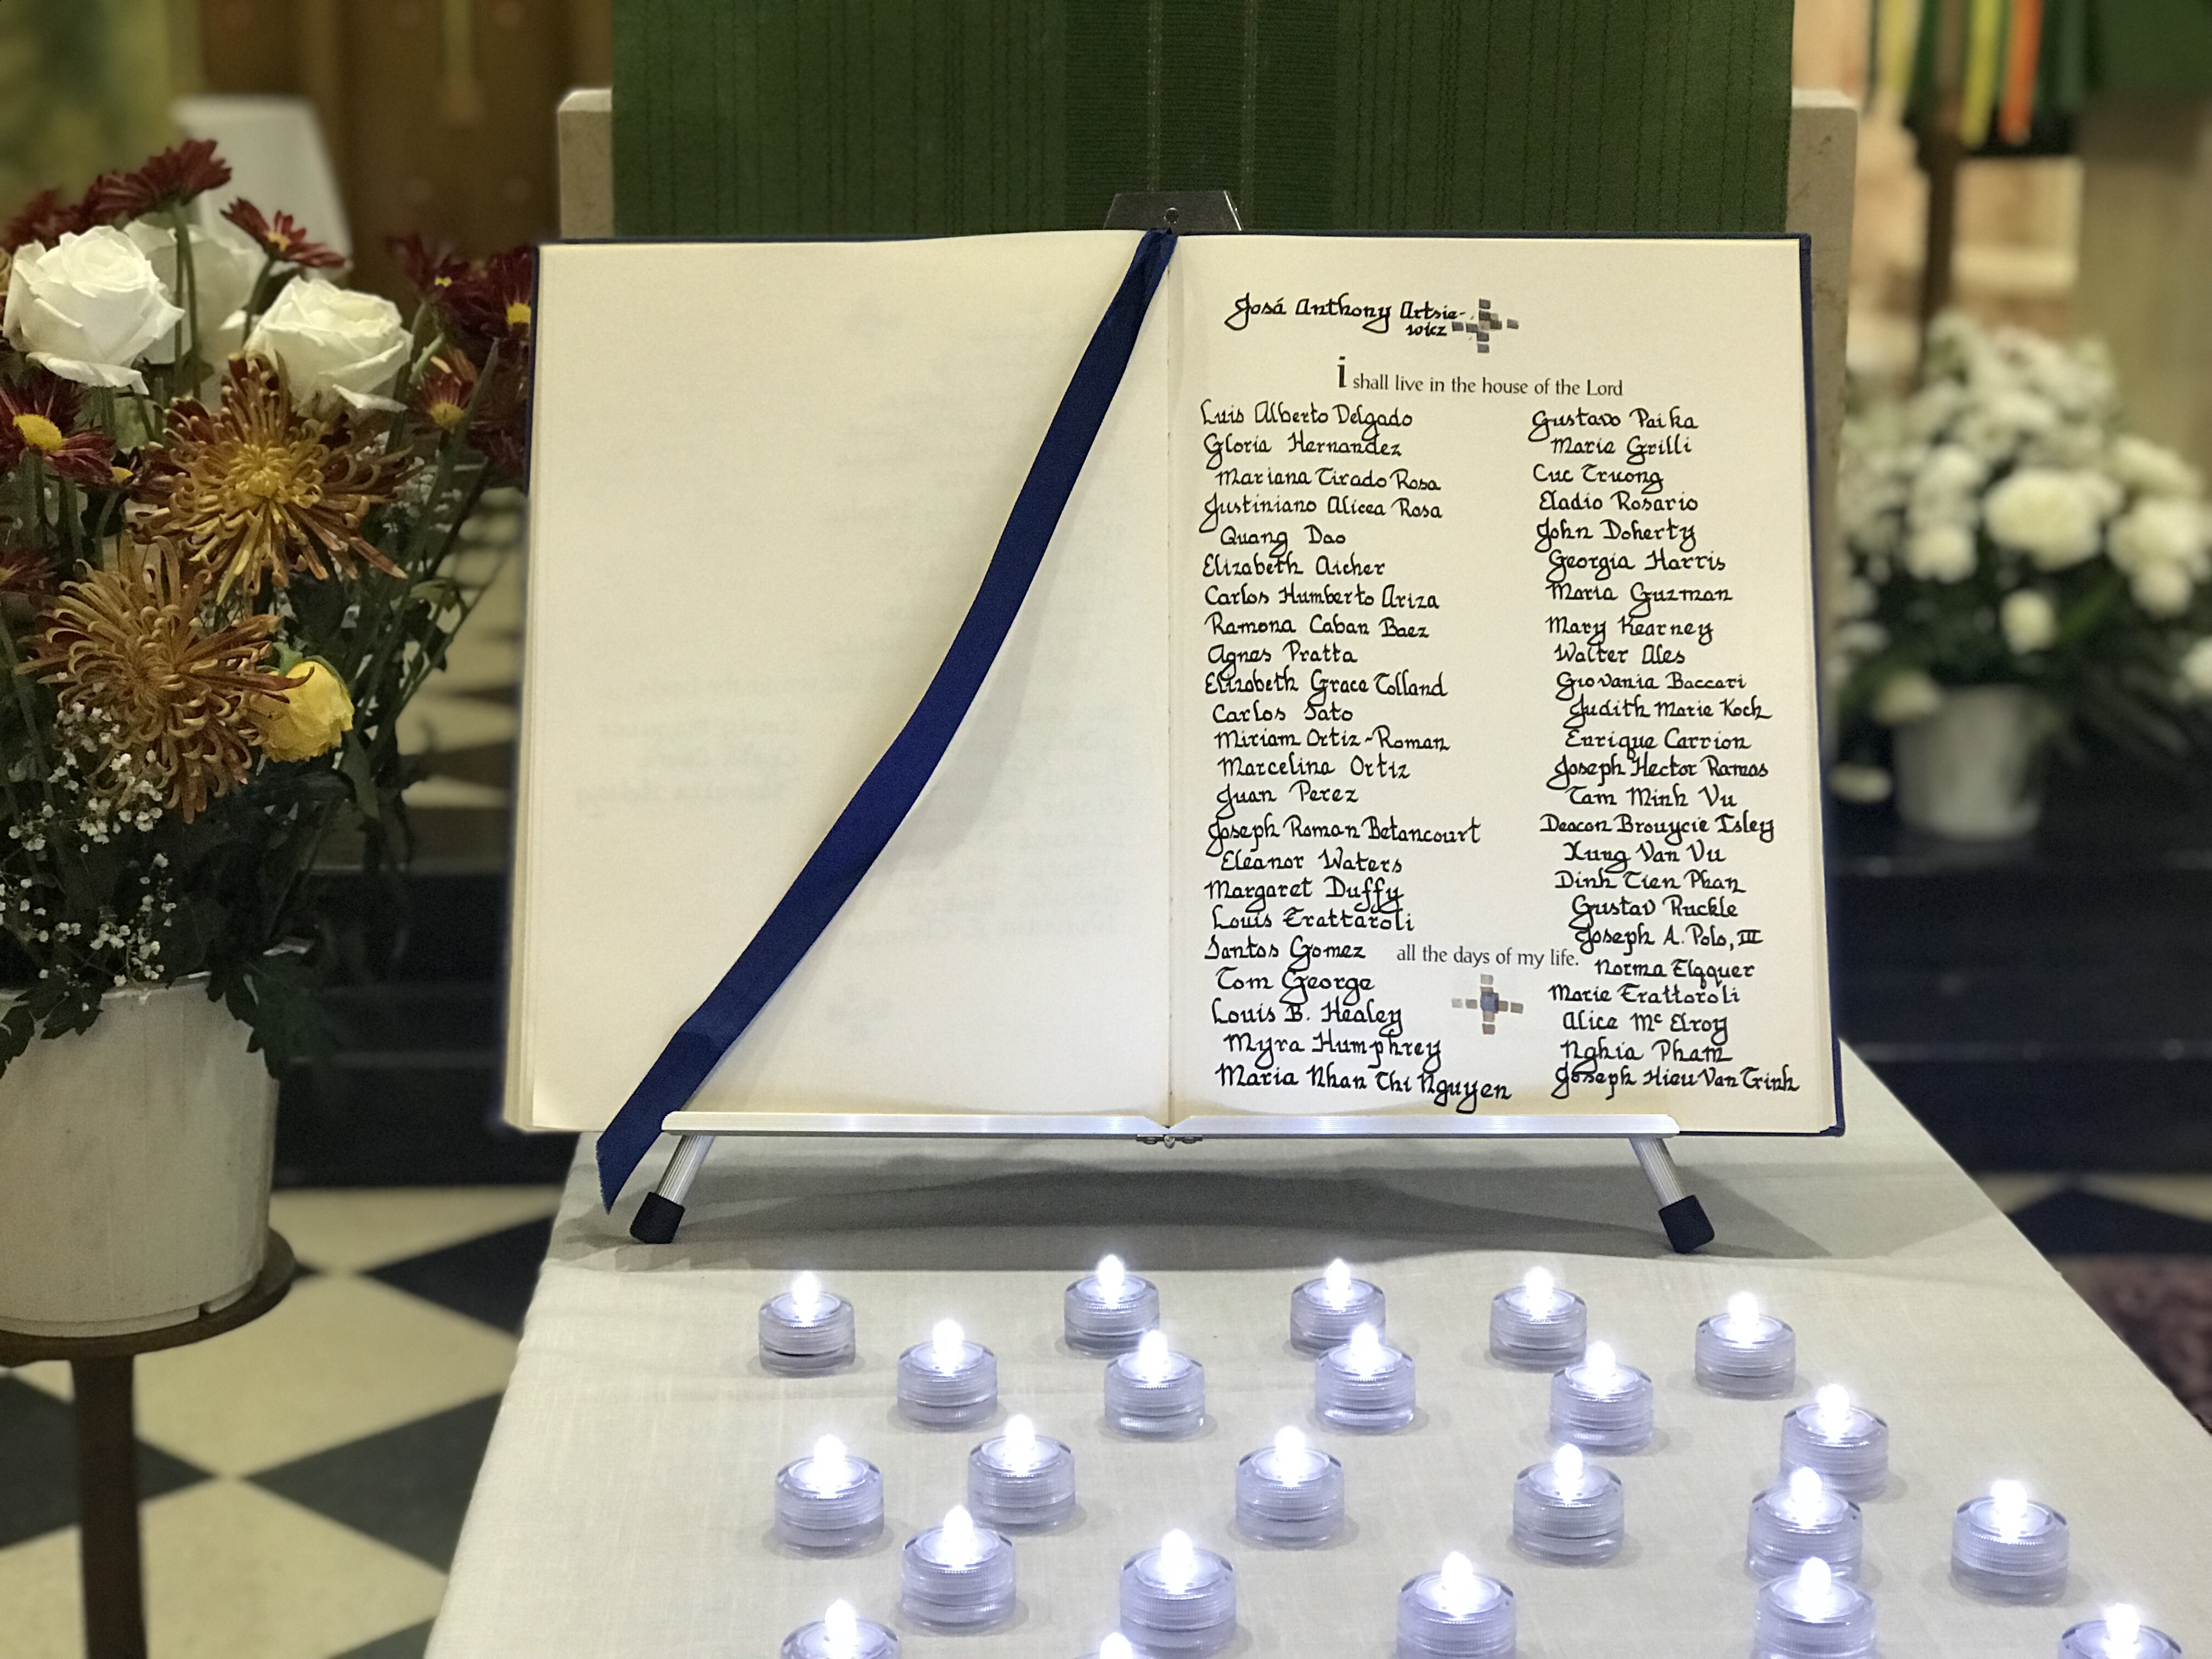 José Anthony Artsie-
wicz
i shall live in the house of the Lord
Luis Alberto Delgado
Gloria Hernandez
Mariana Tirado Rosa
Justiniano Alicea Rosa
Quang Dao
Elizabeth Aicher
Carlos Humberto Ariza
Ramona Caban Baez
Agnes Pratta
Elizabeth Grace Tolland
Carlos Sato
Miriam Ortiz-Roman
Marcelina Ortiz
Juan Perez
Joseph Roman Betancourt
Eleanor Waters
Margaret Duffy
Louis Trattaroli
Santos Gomez
Tom George
Louis B. Healey
Myra Humphrey
Maria Nhan Thi Nguyen
Gustavo Paika
Marie Grilli
Cuc Truong
Eladio Rosario
John Doherty
Georgia Harris
Maria Guzman
Mary Kearney
Walter Ales
Giovania Baccari
Judith Marie Koch
Enrique Carrion
Joseph Hector Ramos
Tam Minh Vu
Deacon Brouycie Isley
Xung Van Vu
Dinh Tien Phan
Gustav Ruckle
Joseph A. Polo, III
Norma Elqquer
Marie Trattaroli
Alice Mc Elroy
Nghia Pham
Joseph Hieu Van Trinh
all the days of my life.